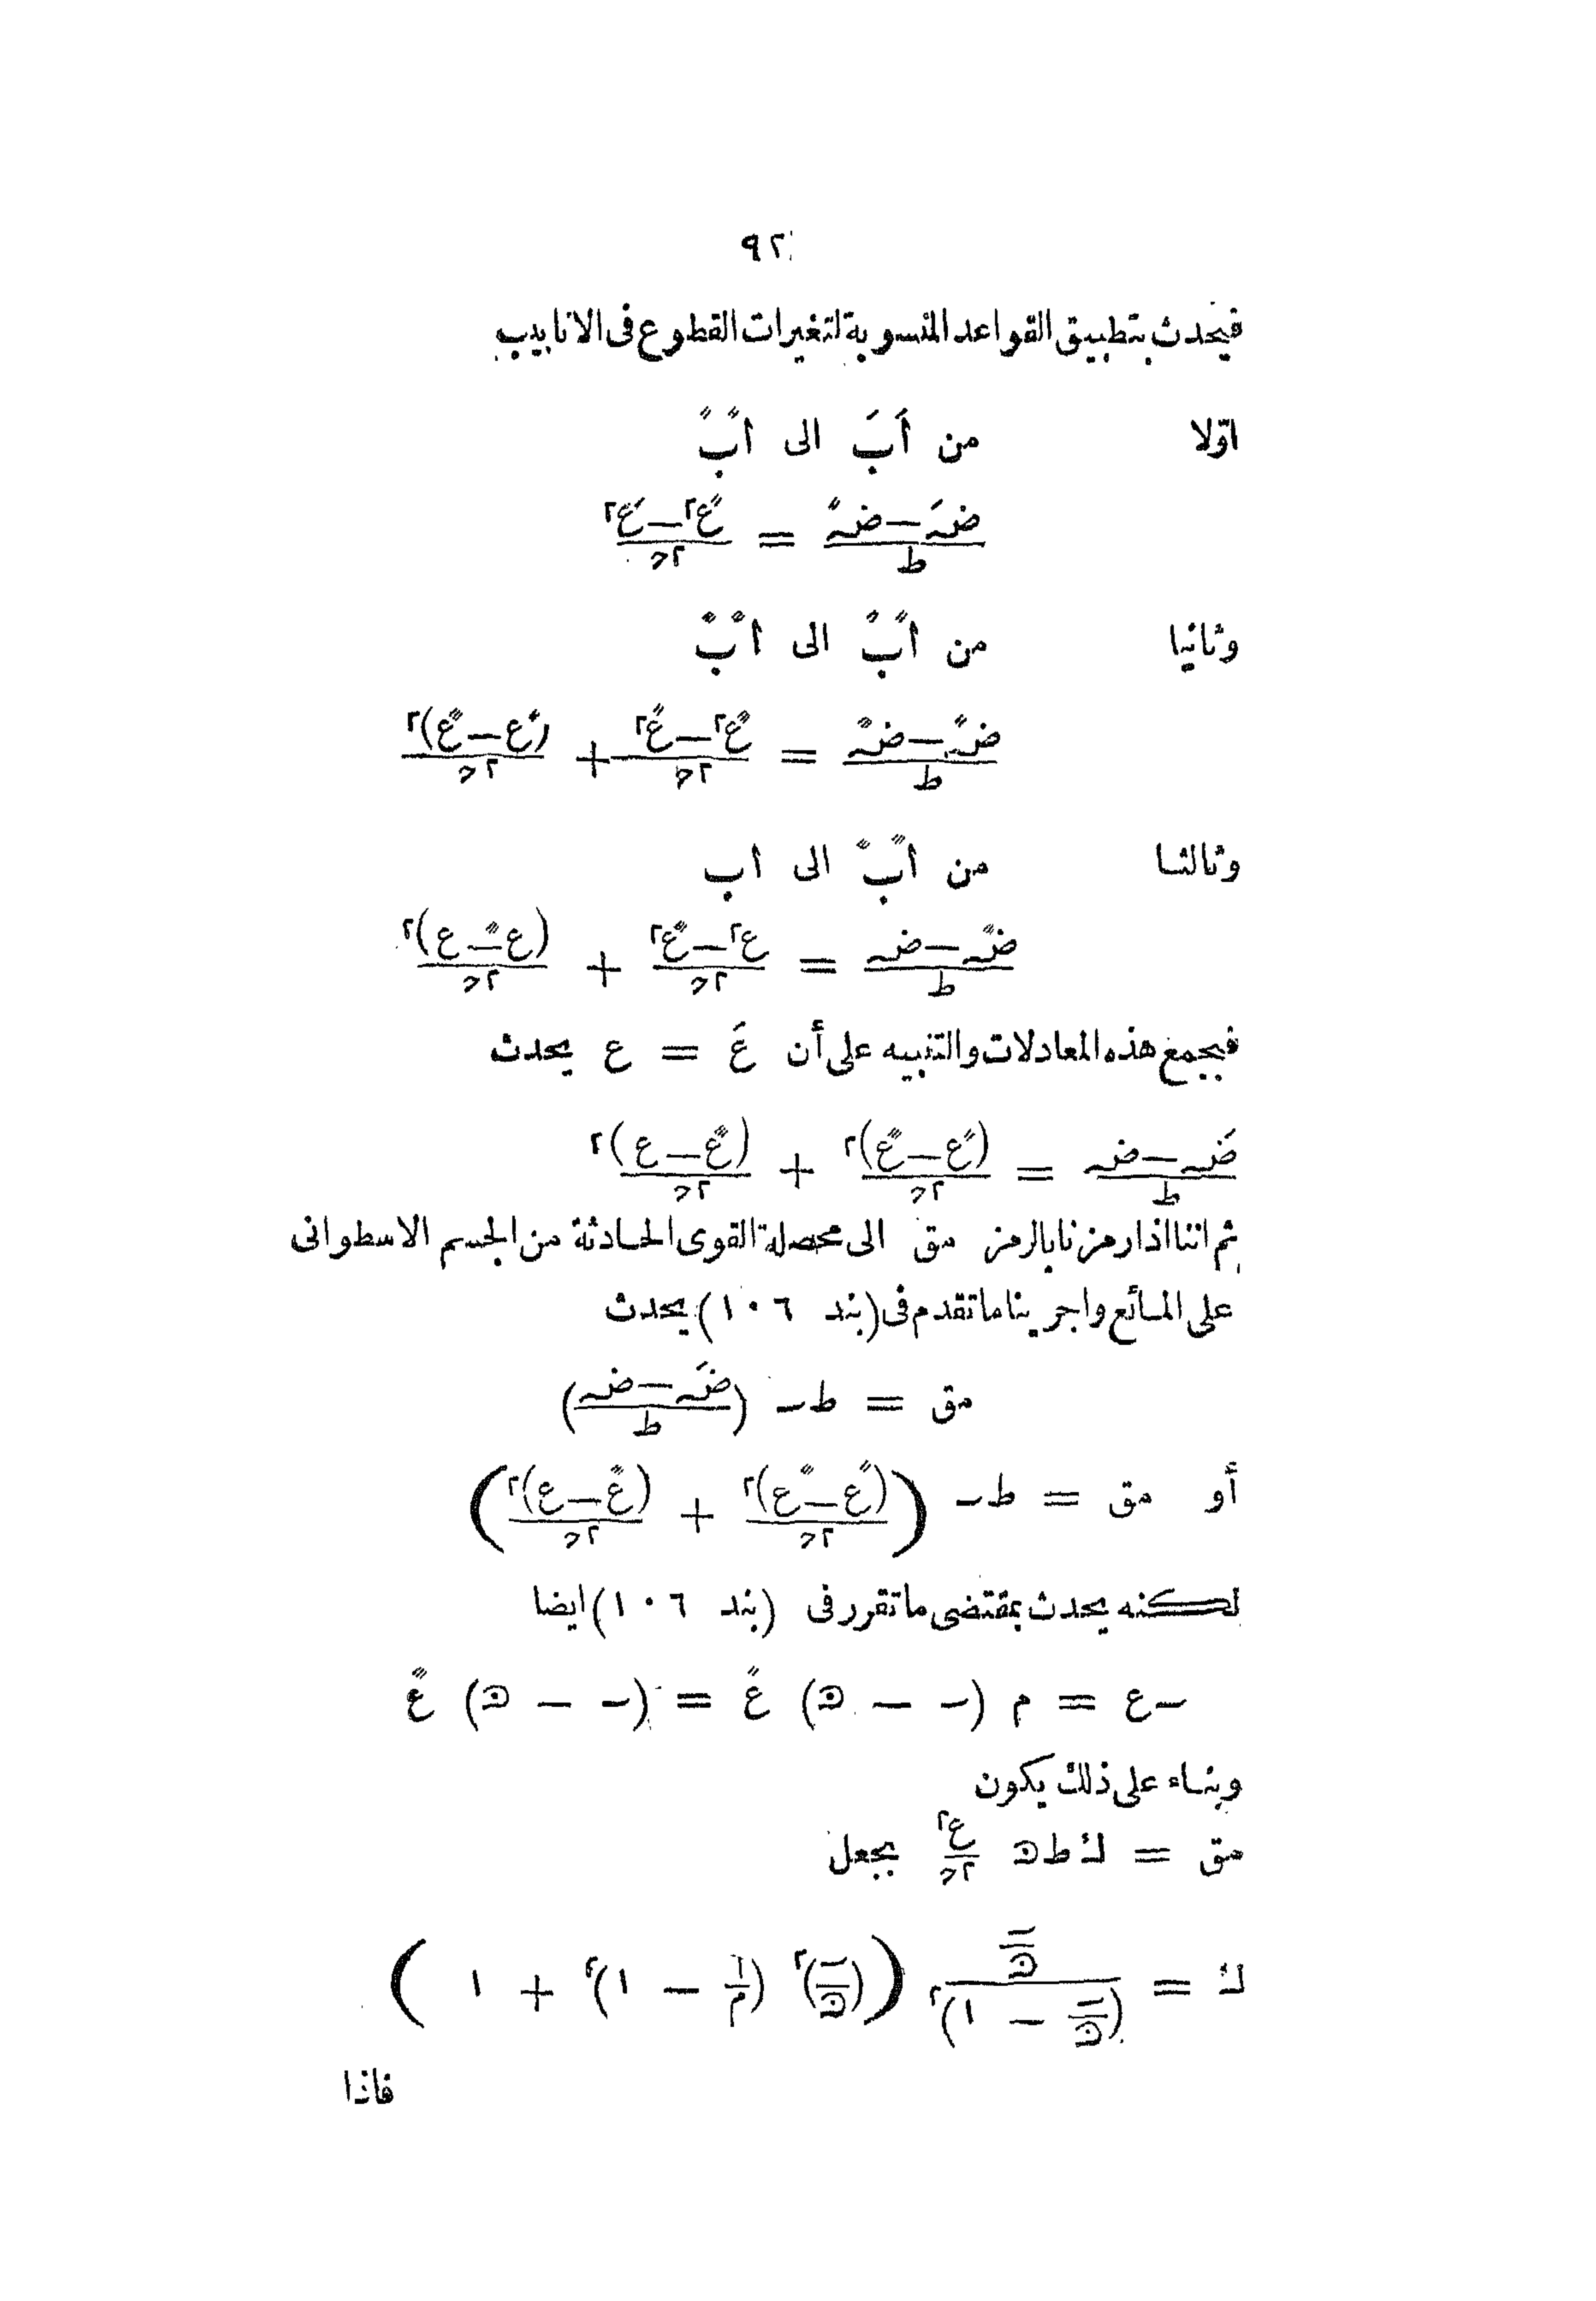 ٩٢
فيحدث بتطبيق القواعد المنسوبة لتغيرات القطوع فى الانابيب
اوّلا من اَ بَ الى اً بً
(ضہَ − ضہً) / ط = (عً٢ − عَ٢) / ٢ج
وثانيا من اً بً الى اٌ بٌ
(ضہً − ضہٌ) / ط = (عٌ٢ − عً٢) / ٢ج + (عً − عٌ)٢ / ٢ج
وثالثا من اٌ بٌ الى ا ب
(ضہٌ − ضہ) / ط = (ع٢ − عٌ٢) / ٢ج + (عٌ − ع)٢ / ٢ج
فبجمع هذه المعادلات والتنبيه على أن عَ = ع يحدث
(ضہَ − ضہ) / ط = (عً − عٌ)٢ / ٢ج + (عٌ − ع)٢ / ٢ج
ثم اننا اذا رمزنا بالرمز مق الى محصلة القوى الحادثة من الجسم الاسطوانى
على المائع واجرينا ما تقدم فى (بند ١٠٦) يحدث
مق = ط ں ((ضہَ − ضہ) / ط)
أو مق = ط ں ((عً − عٌ)٢ / ٢ج + (عٌ − ع)٢ / ٢ج)
لكنه يحدث بمقتضى ما تقرر فى (بند ١٠٦) ايضا
ں ع = م (ں − ق) عً = (ں − ق) عٌ
وبناء على ذلك يكون
مق = ك ط ق ع٢ / ٢ج بجعل
ك = (ں/ق) / (ں/ق − ١)٢ ((ں/ق)٢ (١/م − ١)٢ + ١)
فاذا